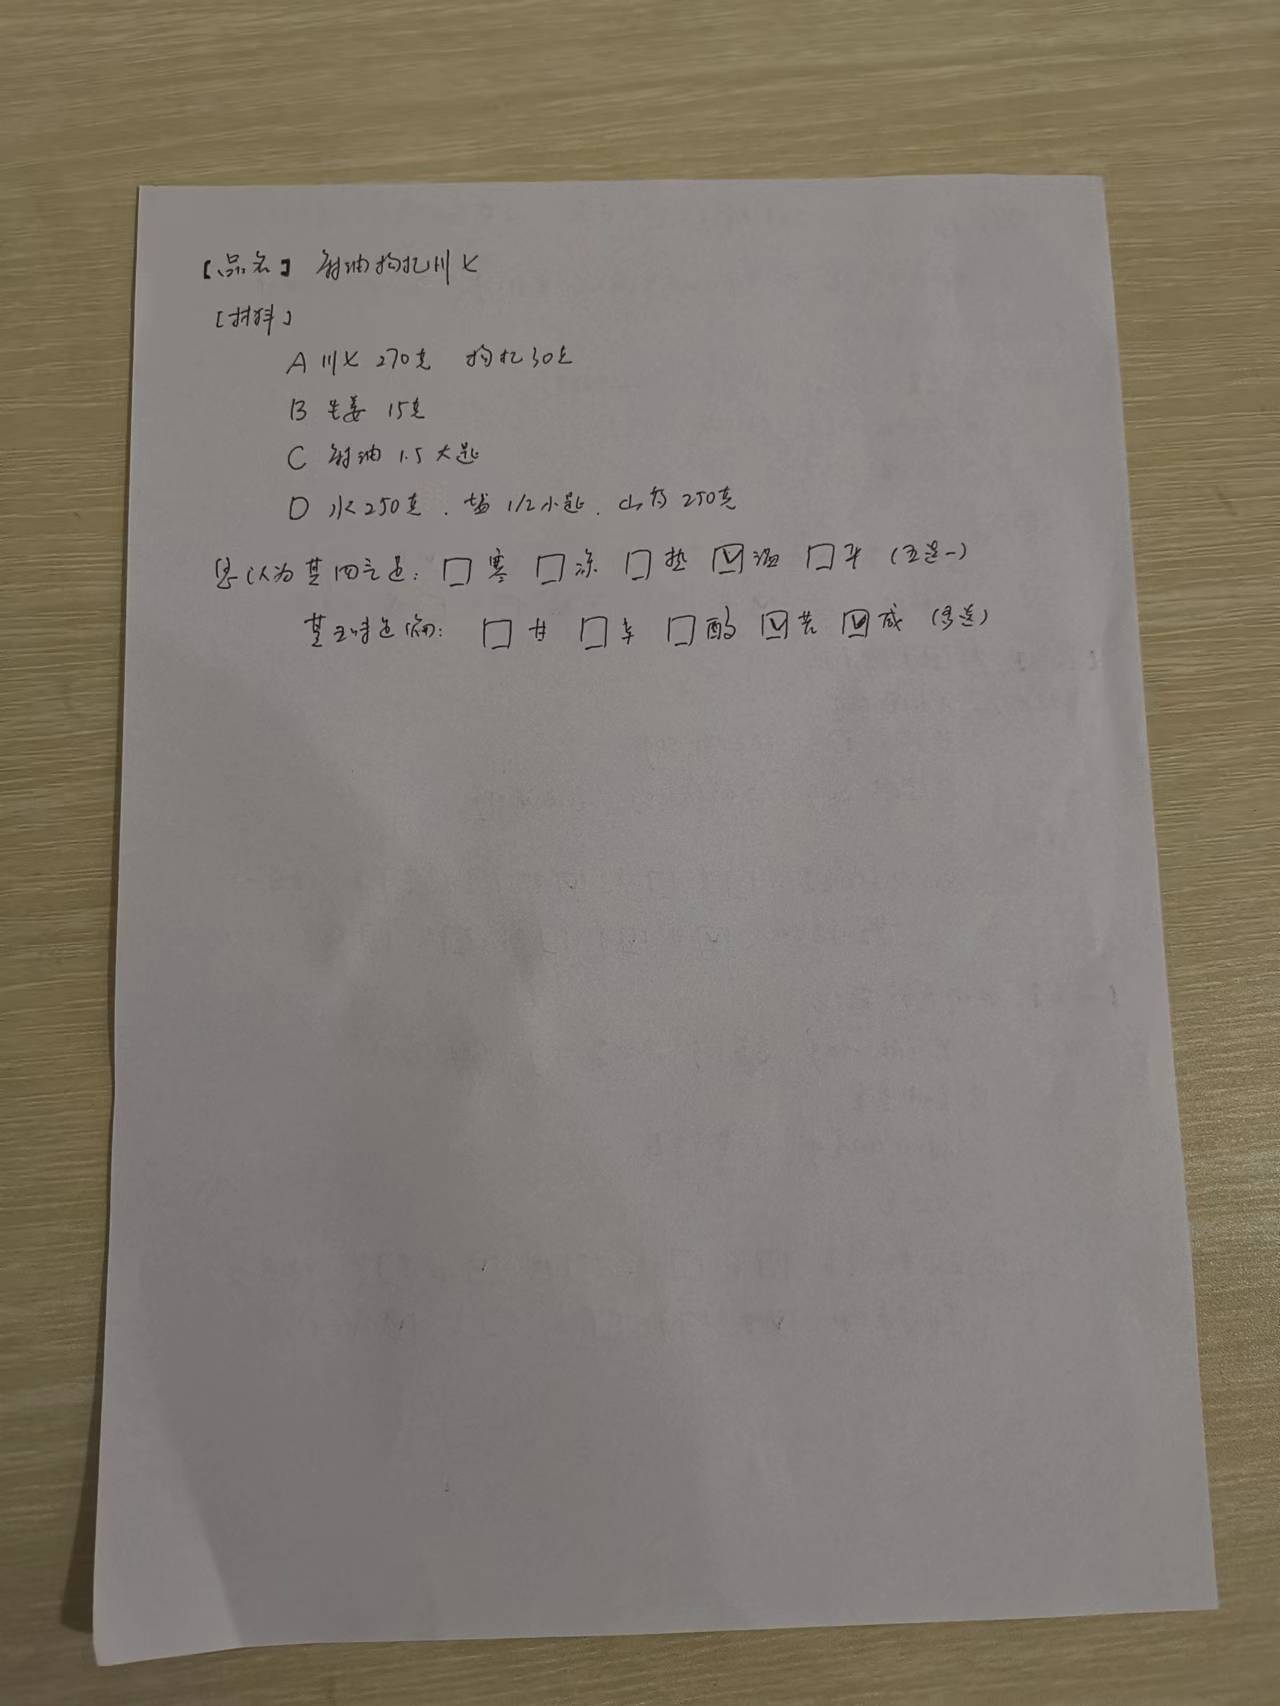 【品名】 射油枸杞川七
【材料】
A 川七 270克 枸杞30克
B 生姜 15克
C 射油 1.5大匙
D 水250克、盐1/2小匙、山药250克
您认为其四气是: □寒 □凉 □热 ☑温 □平 (五选一)
其五味是(何): □甘 □辛 □酸 ☑苦 ☑咸 (多选)